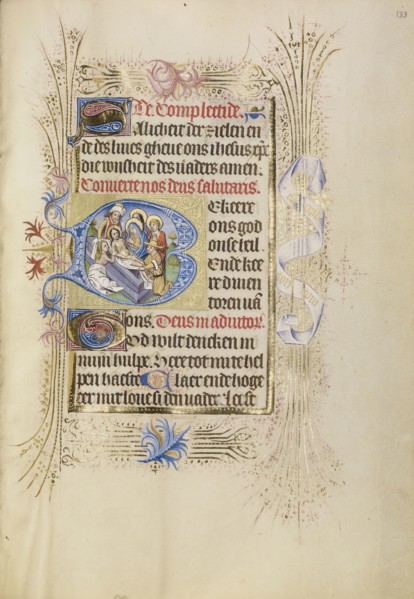 Te Complectide.
Salicheit der zielen en
de des liues gheue ons ihesus xpc
die wijsheit des vaders amen.
Conuerte nos deus salutaris.
Bekeere
ons god
onse heil.
Ende kee
re dinen
toren van
ons. Deus in adiutor.
God wilt dencken in
mijn hulpe. Here tot mi te hel
pen haeste Claer ende hoge